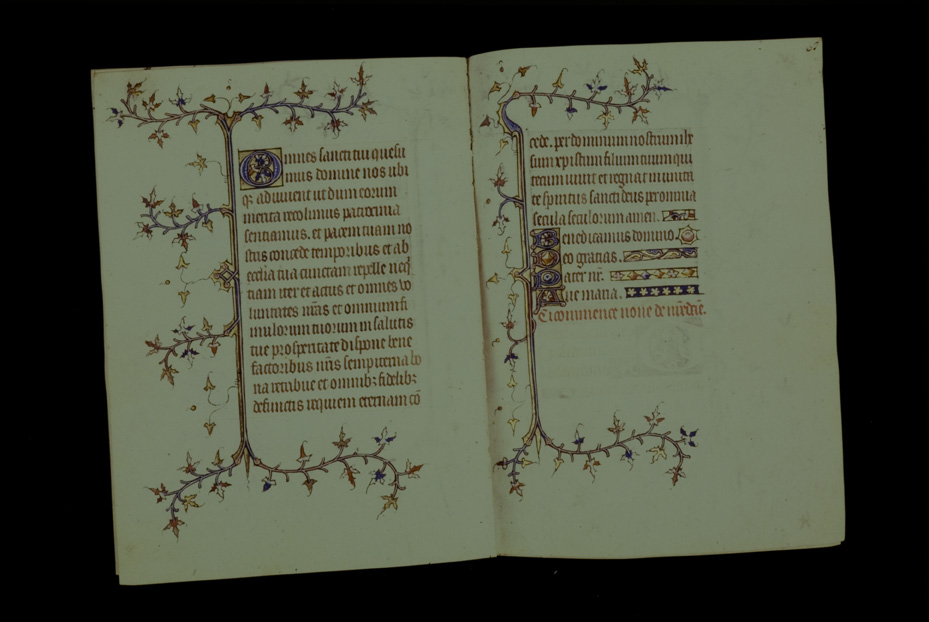 Omnes sancti tui quesu
mus domine nos ubi
q; adiuuent ut dum eorum
merita recolimus patrocinia
sentiamus. et pacem tuam no
stris concede temporibus et ab
ecclia tua cunctam repelle neq
tiam iter et actus et omnes vo
luntates nr̃as et omnium fa
mulorum tuorum in salutis
tue prosperitate dispone bene
factoribus nr̃is sempiterna bo
na retribue et omnibz fidelibz
defunctis requiem eternam cõ
cede. per dominum nostrum ihc
sum xpistum filium tuum qui
tecum uiuit et regnat in unita
te spiritus sancti deus per omnia
secula seculorum amen.
Benedicamus domino.
Deo gratias.
Pater nr̃.
Aue maria.
Ci commence none de nr̃e dame.